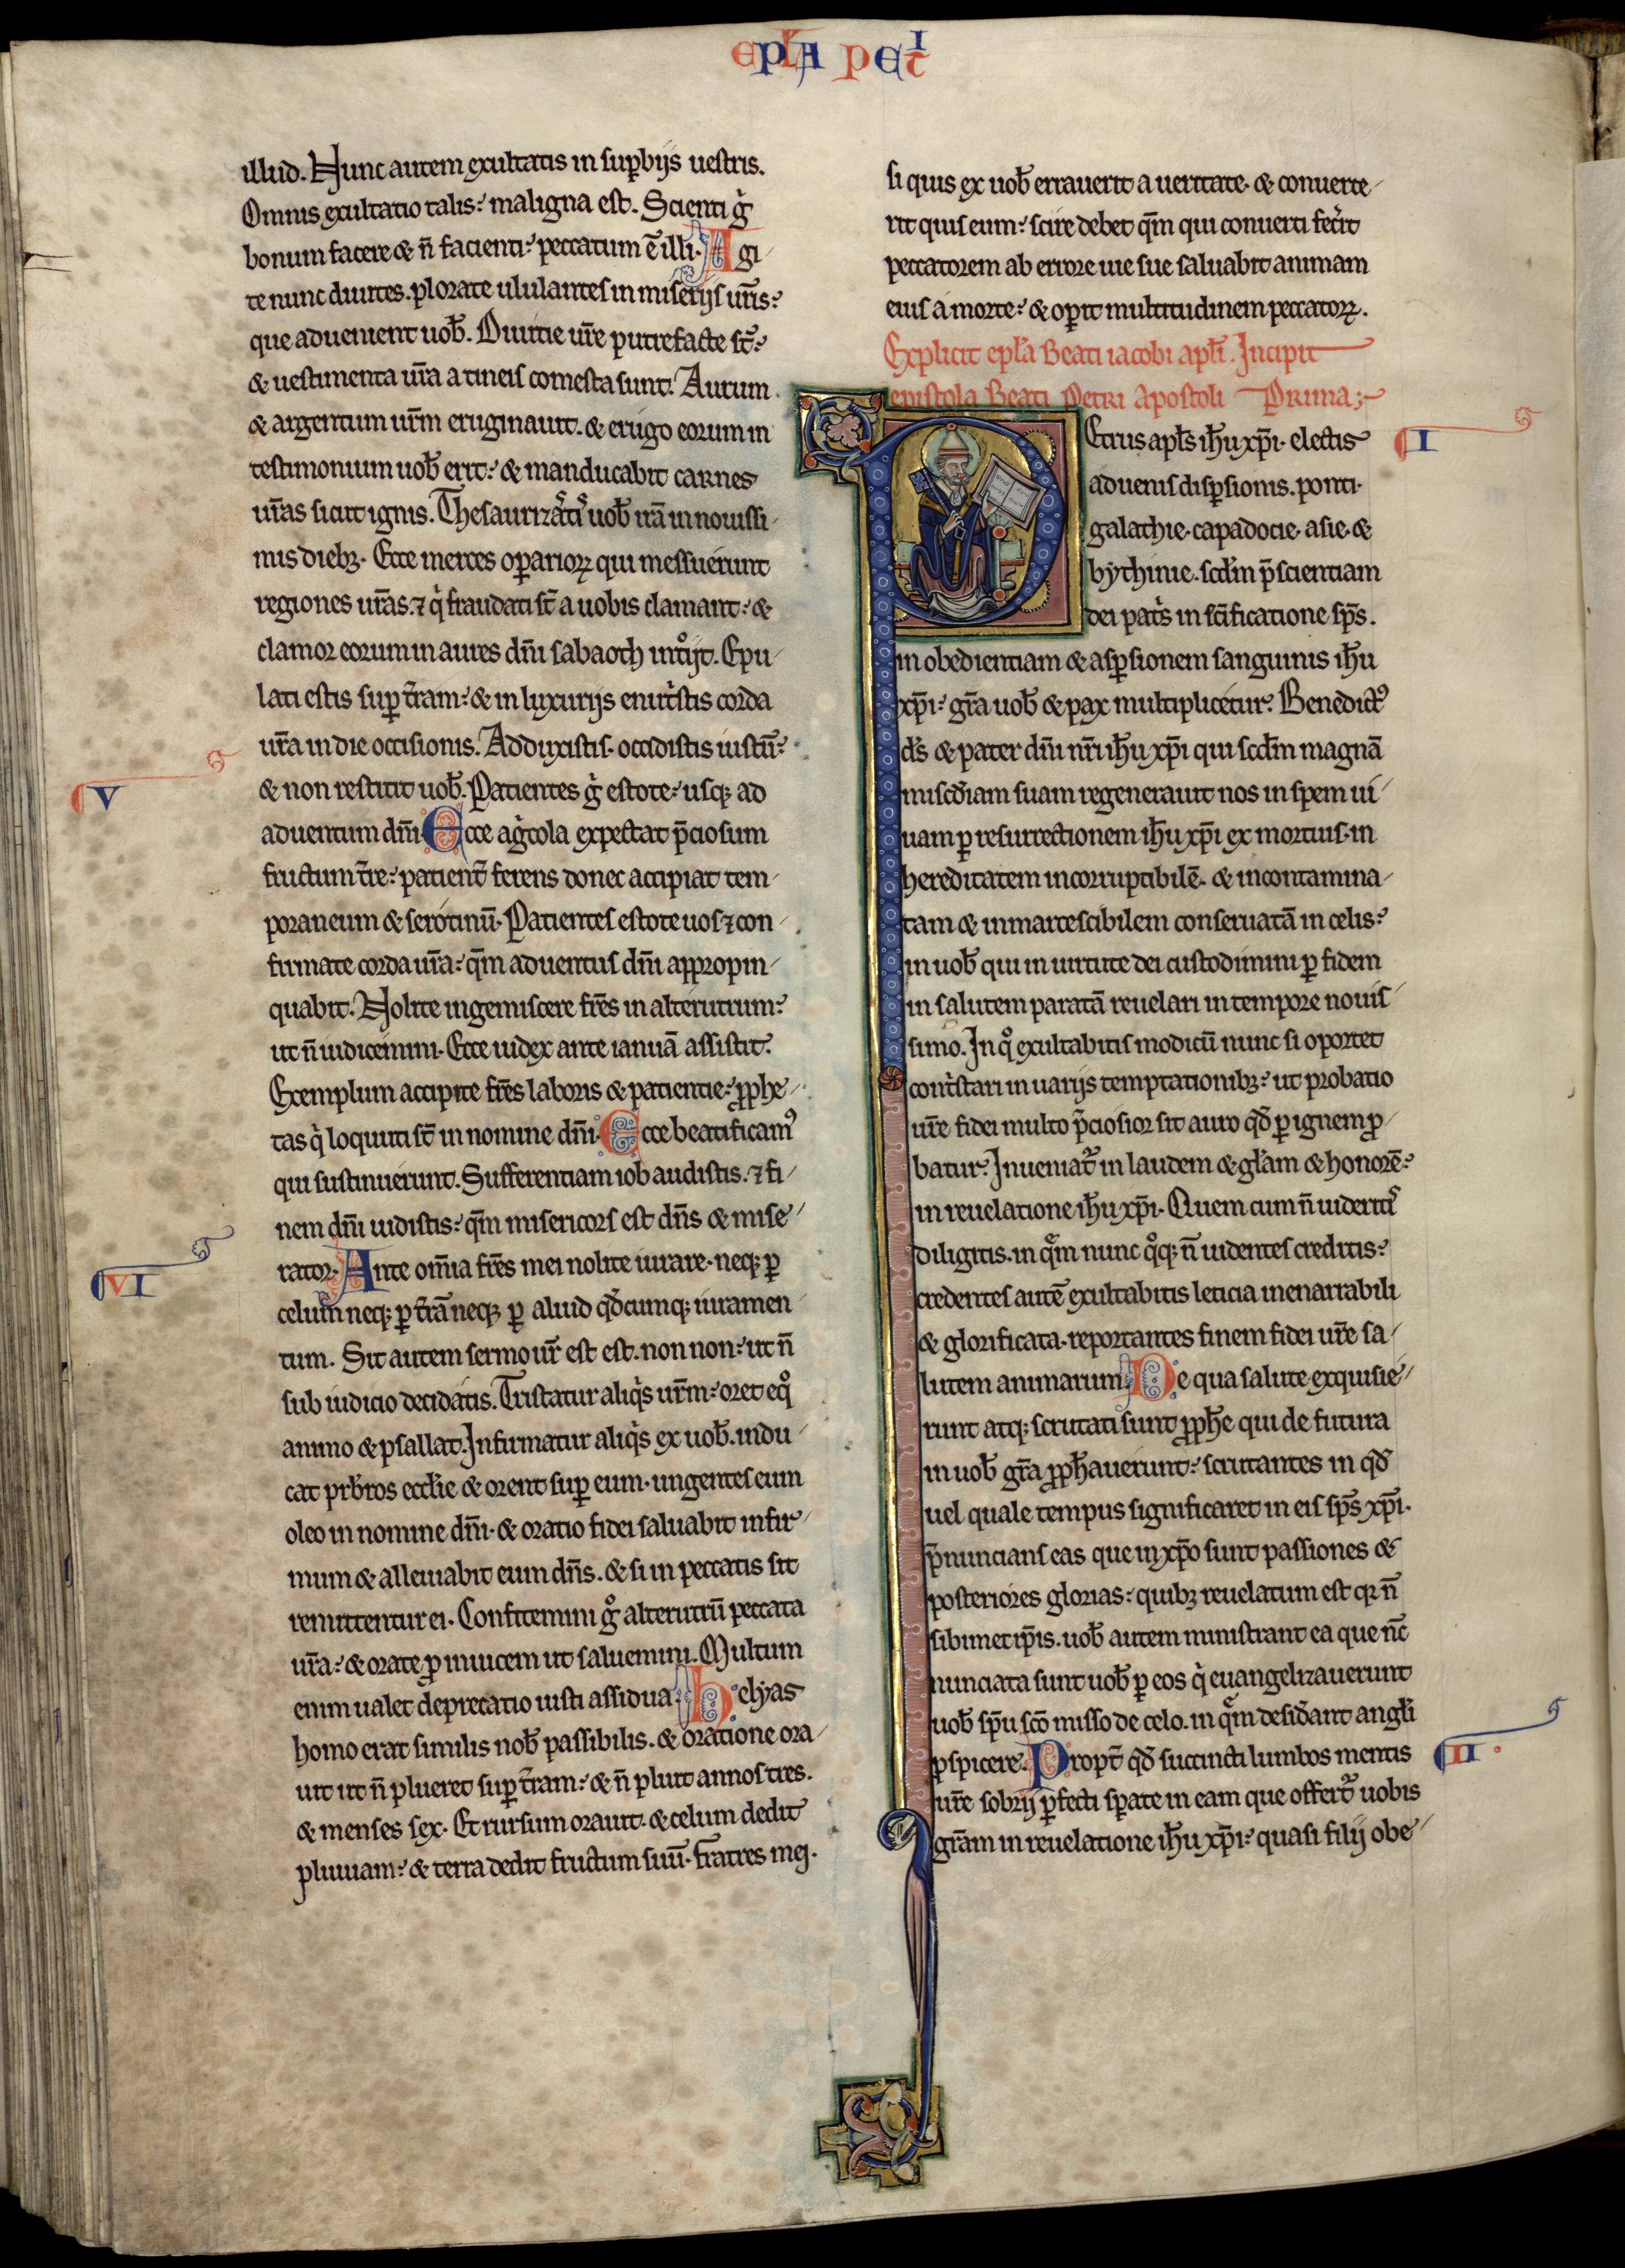 epl̄a pet I
illud. Nunc autem exultatis in sup̱bijs uestris.
Omnis exultatio talis: maligna est. Scienti g̊
bonum facere & n̄ facienti: peccatum ē illi. Agi
te nunc diuites. plorate ululantes in miserijs ur̄is:
que aduenient uob̄. Diuitie ur̄e putrefacte st̄:
& uestimenta ur̄a a tineis comesta sunt. Aurum
& argentum ur̄m eruginauit. & erugo eorum in
testimonium uob̄ erit: & manducabit carnes
ur̄as sicut ignis. Thesaurizasti uob̄ irā in nouissi
mis dieb; Ecce merces op̱arioꝝ qui messuerunt
regiones ur̄as. ⁊ q̇ fraudati st̄ a uobis clamant: &
clamor eorum in aures dn̄i sabaoth int̊ijt. Epu
lati estis sup̱ t̄ram: & in luxurijs enut̊stis corda
ur̄a in die occisionis. Adduxistis. occidistis iustū:
& non restitit uob̄. Patientes g̊ estote: usq; ad
V
aduentum dn̄i. Ecce ag̊cola expectat p̄ciosum
fructum t̄re: patient̄ ferens donec accipiat tem
poraneum & serotinū. Patientes estote uos ⁊ con
firmate corda ur̄a: qm̄ aduentus dn̄i appropin
quabit. Nolite ingemiscere fr̄es in alterutrum:
ut n̄ iudicemini. Ecce iudex ante ianuā assistit.
Exemplum accipite fr̄es laboris & patientie: p̱phe
tas q̇ loquuti st̄ in nomine dn̄i. Ecce beatificam᷒
qui sustinuerunt. Sufferentiam iob audistis. ⁊ fi
nem dn̄i uidistis: qm̄ misericors est dn̄s & mise
rator. Ante om̄ia fr̄es mei nolite iurare. neq; p̱
VI
celum neq; p̱ t̄rā neq; p̱ aliud qd̄cumq; iuramen
tum. Sit autem sermo ur̄ est est. non non: ut n̄
sub iudicio decidatis. Tristatur aliq̇s ur̄m: oret eq̊
animo & psallat. Infirmatur aliq̇s ex uob̄. indu
cat prb̄ros eccl̄ie & orent sup̱ eum. ungentes eum
oleo in nomine dn̄i. & oratio fidei saluabit infir
mum & alleuiabit eum dn̄s. & si in peccatis sit
remittentur ei. Confitemini g̊ alterutrū peccata
ur̄a: & orate p̱ inuicem ut saluemini. Multum
enim ualet deprecatio iusti assidua. helyas
homo erat similis nob̄ passibilis. & oratione ora
uit ut n̄ plueret sup̱ t̄ram: & n̄ pluit annos tres.
& menses sex. Et rursum orauit. & celum dedit
pluuiam: & terra dedit fructum suū. fratres mei.
si quis ex uob̄ errauerit a ueritate. & conuerte
rit quis eum: scire debet qm̄ qui conuerti fec̄it
peccatorem ab errore uie sue saluabit animam
eius a morte: & op̱it multitudinem peccatoꝝ.
Explicit epl̄a Beati iacobi apl̄i. Incipit
epistola Beati Petri Apostoli Prima;
PEtrus apl̄s ih̄u xp̄i. electis
I
aduenis disp̱sionis. ponti.
galathie. capadocie. asie. &
bythinie. scd̄m p̄scientiam
dei pat̊s in sc̄ificatione sp̄s.
in obedientiam & asp̱sionem sanguinis ih̄u
xp̄i: gr̄a uob̄ & pax multiplicetur. Benedict᷒
ds̄ & pater dn̄i nr̄i ih̄u xp̄i qui scd̄m magnā
miscd̄iam suam regenerauit nos in spem ui
uam p̱ resurrectionem ih̄u xp̄i ex mortuis. in
hereditatem incorruptibilē. & incontamina
tam & inmarcescibilem conseruatā in celis:
in uob̄ qui in uirtute dei custodimini p̱ fidem
in salutem paratā reuelari in tempore nouis
simo. In q̊ exultabitis modicū nunc si oportet
cont̊stari in uarijs temptationib;: ut probatio
ur̄e fidei multo p̄ciosior sit auro qd̄ p̱ ignem p̱
batur. Inueniat᷑ in laudem & gl̄am & honorē:
in reuelatione ih̄u xp̄i. Quem cum n̄ uideritis
diligitis. in q̄m nunc q̊q; n̄ uidentes creditis:
credentes autē exultabitis leticia inenarrabili
& glorificata. reportantes finem fidei ur̄e sa
lutem animarum. De qua salute exquisie
runt atq; scrutati sunt p̱ph̄e qui de futura
in uob̄ gr̄a p̱ph̄auerunt: scrutantes in qd̄
uel quale tempus significaret in eis sp̄s xp̄i.
p̄nuncians eas que in xp̄o sunt passiones &
posteriores glorias: quib; reuelatum est qꝛ n̄
sibimet ip̄is. uob̄ autem ministrant ea que nc̄
nunciata sunt uob̄ p̱ eos q̇ euangelizauerunt
uob̄ sp̄u sc̄o misso de celo. in q̄m desid̄ant angl̄i
p̱spicere. Propt̄ qd̄ succincti lumbos mentis
II.
ur̄e sobrij p̱fecti sp̱ate in eam que offert᷑ uobis
gr̄am in reuelatione ih̄u xp̄i: quasi filij obe